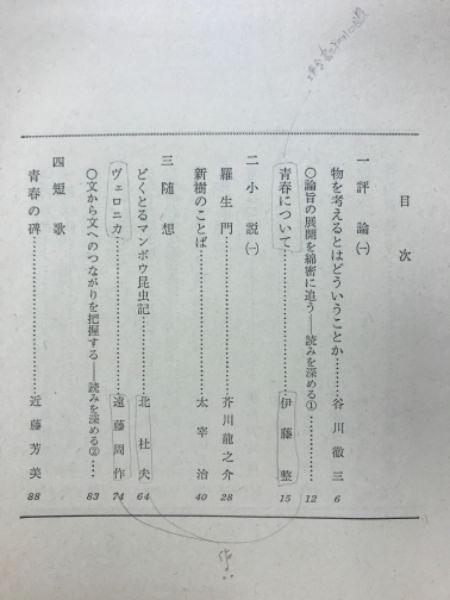 目次
一 評論㈠
物を考えるとはどういうことか………谷川徹三 6
○論旨の展開を綿密に追う——読みを深める①………12
青春について………伊藤整 15
二 小説㈠
羅生門………芥川龍之介 28
新樹のことば………太宰治 40
三 随想
どくとるマンボウ昆虫記………北杜夫 64
ヴェロニカ………遠藤周作 74
○文から文へのつながりを把握する——読みを深める②………83
四 短歌
青春の碑………近藤芳美 88